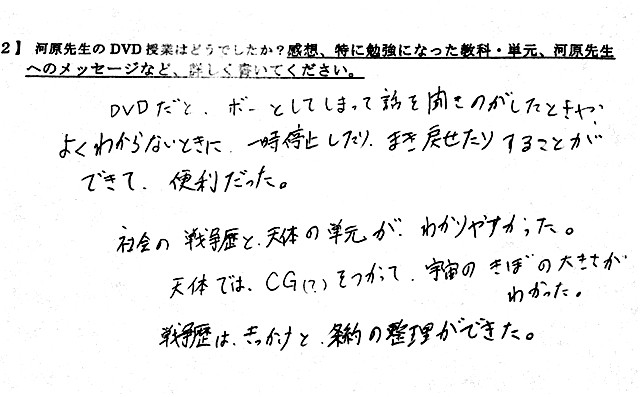 2】 河原先生のDVD授業はどうでしたか?感想、特に勉強になった教科・単元、河原先生
へのメッセージなど、詳しく書いてください。
DVDだと、ボーとしてしまって話を聞きのがしたときや、
よくわからないときに、一時停止したり、まき戻せたりすることが
できて、便利だった。
社会の戦争歴と、天体の単元が、わかりやすかった。
天体では、CG(?)をつかって、宇宙のきぼの大きさが
わかった。
戦争歴は、きっかけと、条約の整理ができた。